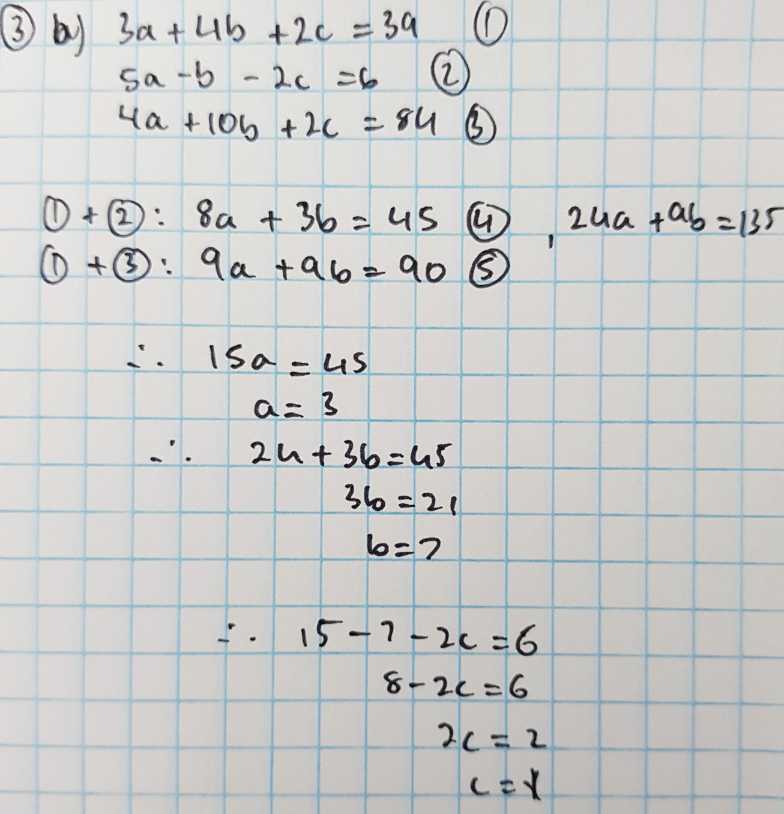 ③ b) 3a + 4b + 2c = 39 ①
5a - b - 2c = 6 ②
4a + 10b + 2c = 84 ③
① + ②: 8a + 3b = 45 ④ , 24a + 9b = 135
① + ③: 9a + 9b = 90 ⑤
∴ 15a = 45
a = 3
∴ 24 + 3b = 45
3b = 21
b = 7
∴ 15 - 7 - 2c = 6
8 - 2c = 6
2c = 2
c = 1